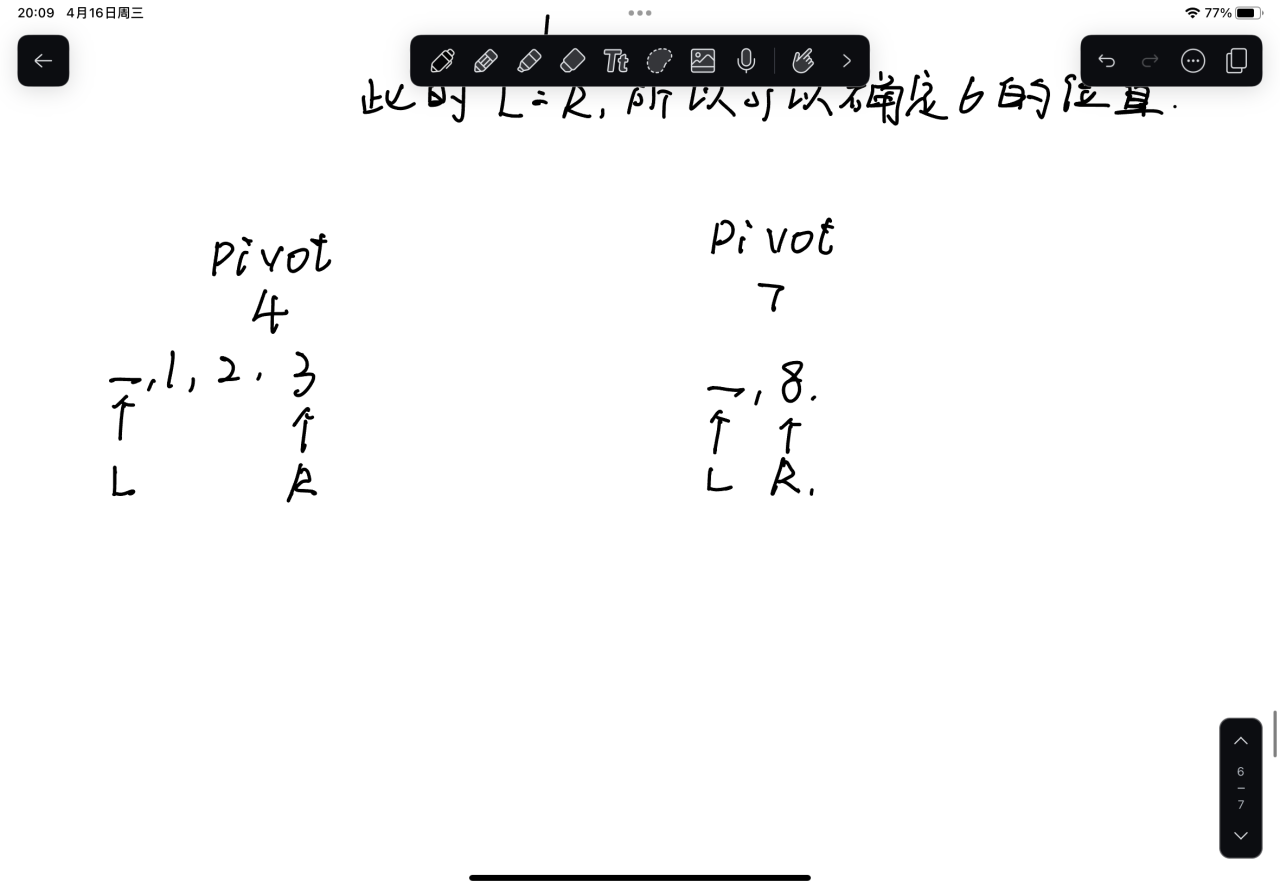 20:09 4月16日周三
77%
Tt
此时 L=R, 所以可以确定 6 的位置.
Pivot
4
_, 1, 2, 3
L R
Pivot
7
_, 8.
L R.
6
7